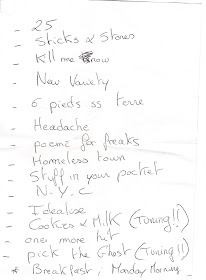 - 25
- Sticks & Stones
- Kll me now
- New Variety
- 6 pieds ss terre
- Headache
- poems for freaks
- Homeless town
- Stuff in your pocket
- N.Y.C
- Idealose
- Cookies & Milk (Tuning!!)
- one more hit
- pick the Ghost (Tuning!!)
* Breakfast, Monday Morning